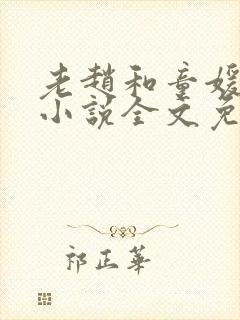 老趙和童媛
小說全文免
祁正華